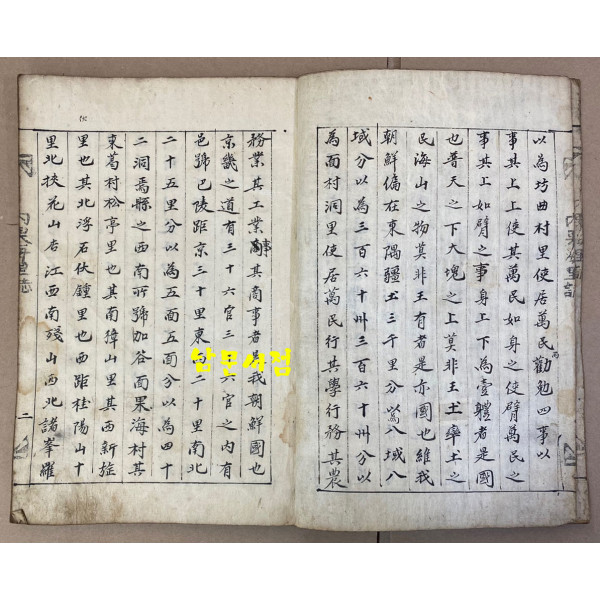 以為坊曲村里使居萬民勸勉四事以
而
事其上上使其萬民如身之使臂萬民之
事其上如臂之事身上下為壹軆者是國
也普天之下大塊之上莫非王土率土之
民海山之物莫非王有者是亦國也維我
朝鮮僑在東隅疆土三千里分以為八域八
域分以為三百六十州三百六十州分以
為面村洞里使居萬民行其學行務其農
務業其工業商其商事者是我朝鮮國也
事
京畿之道有三十六官三六官之內有
邑號巴陵距京三十里東西二十里南北
二十五里分以為五面五面分以為四十
二洞焉縣之西南所號加谷面果海村其
東葛村松亭里也其南獐山里其西新旌
里也其北浮石伏鍾里也西距桂陽山十
里北挾花山杏江西南殘山西北諸峯羅
二
남문서점